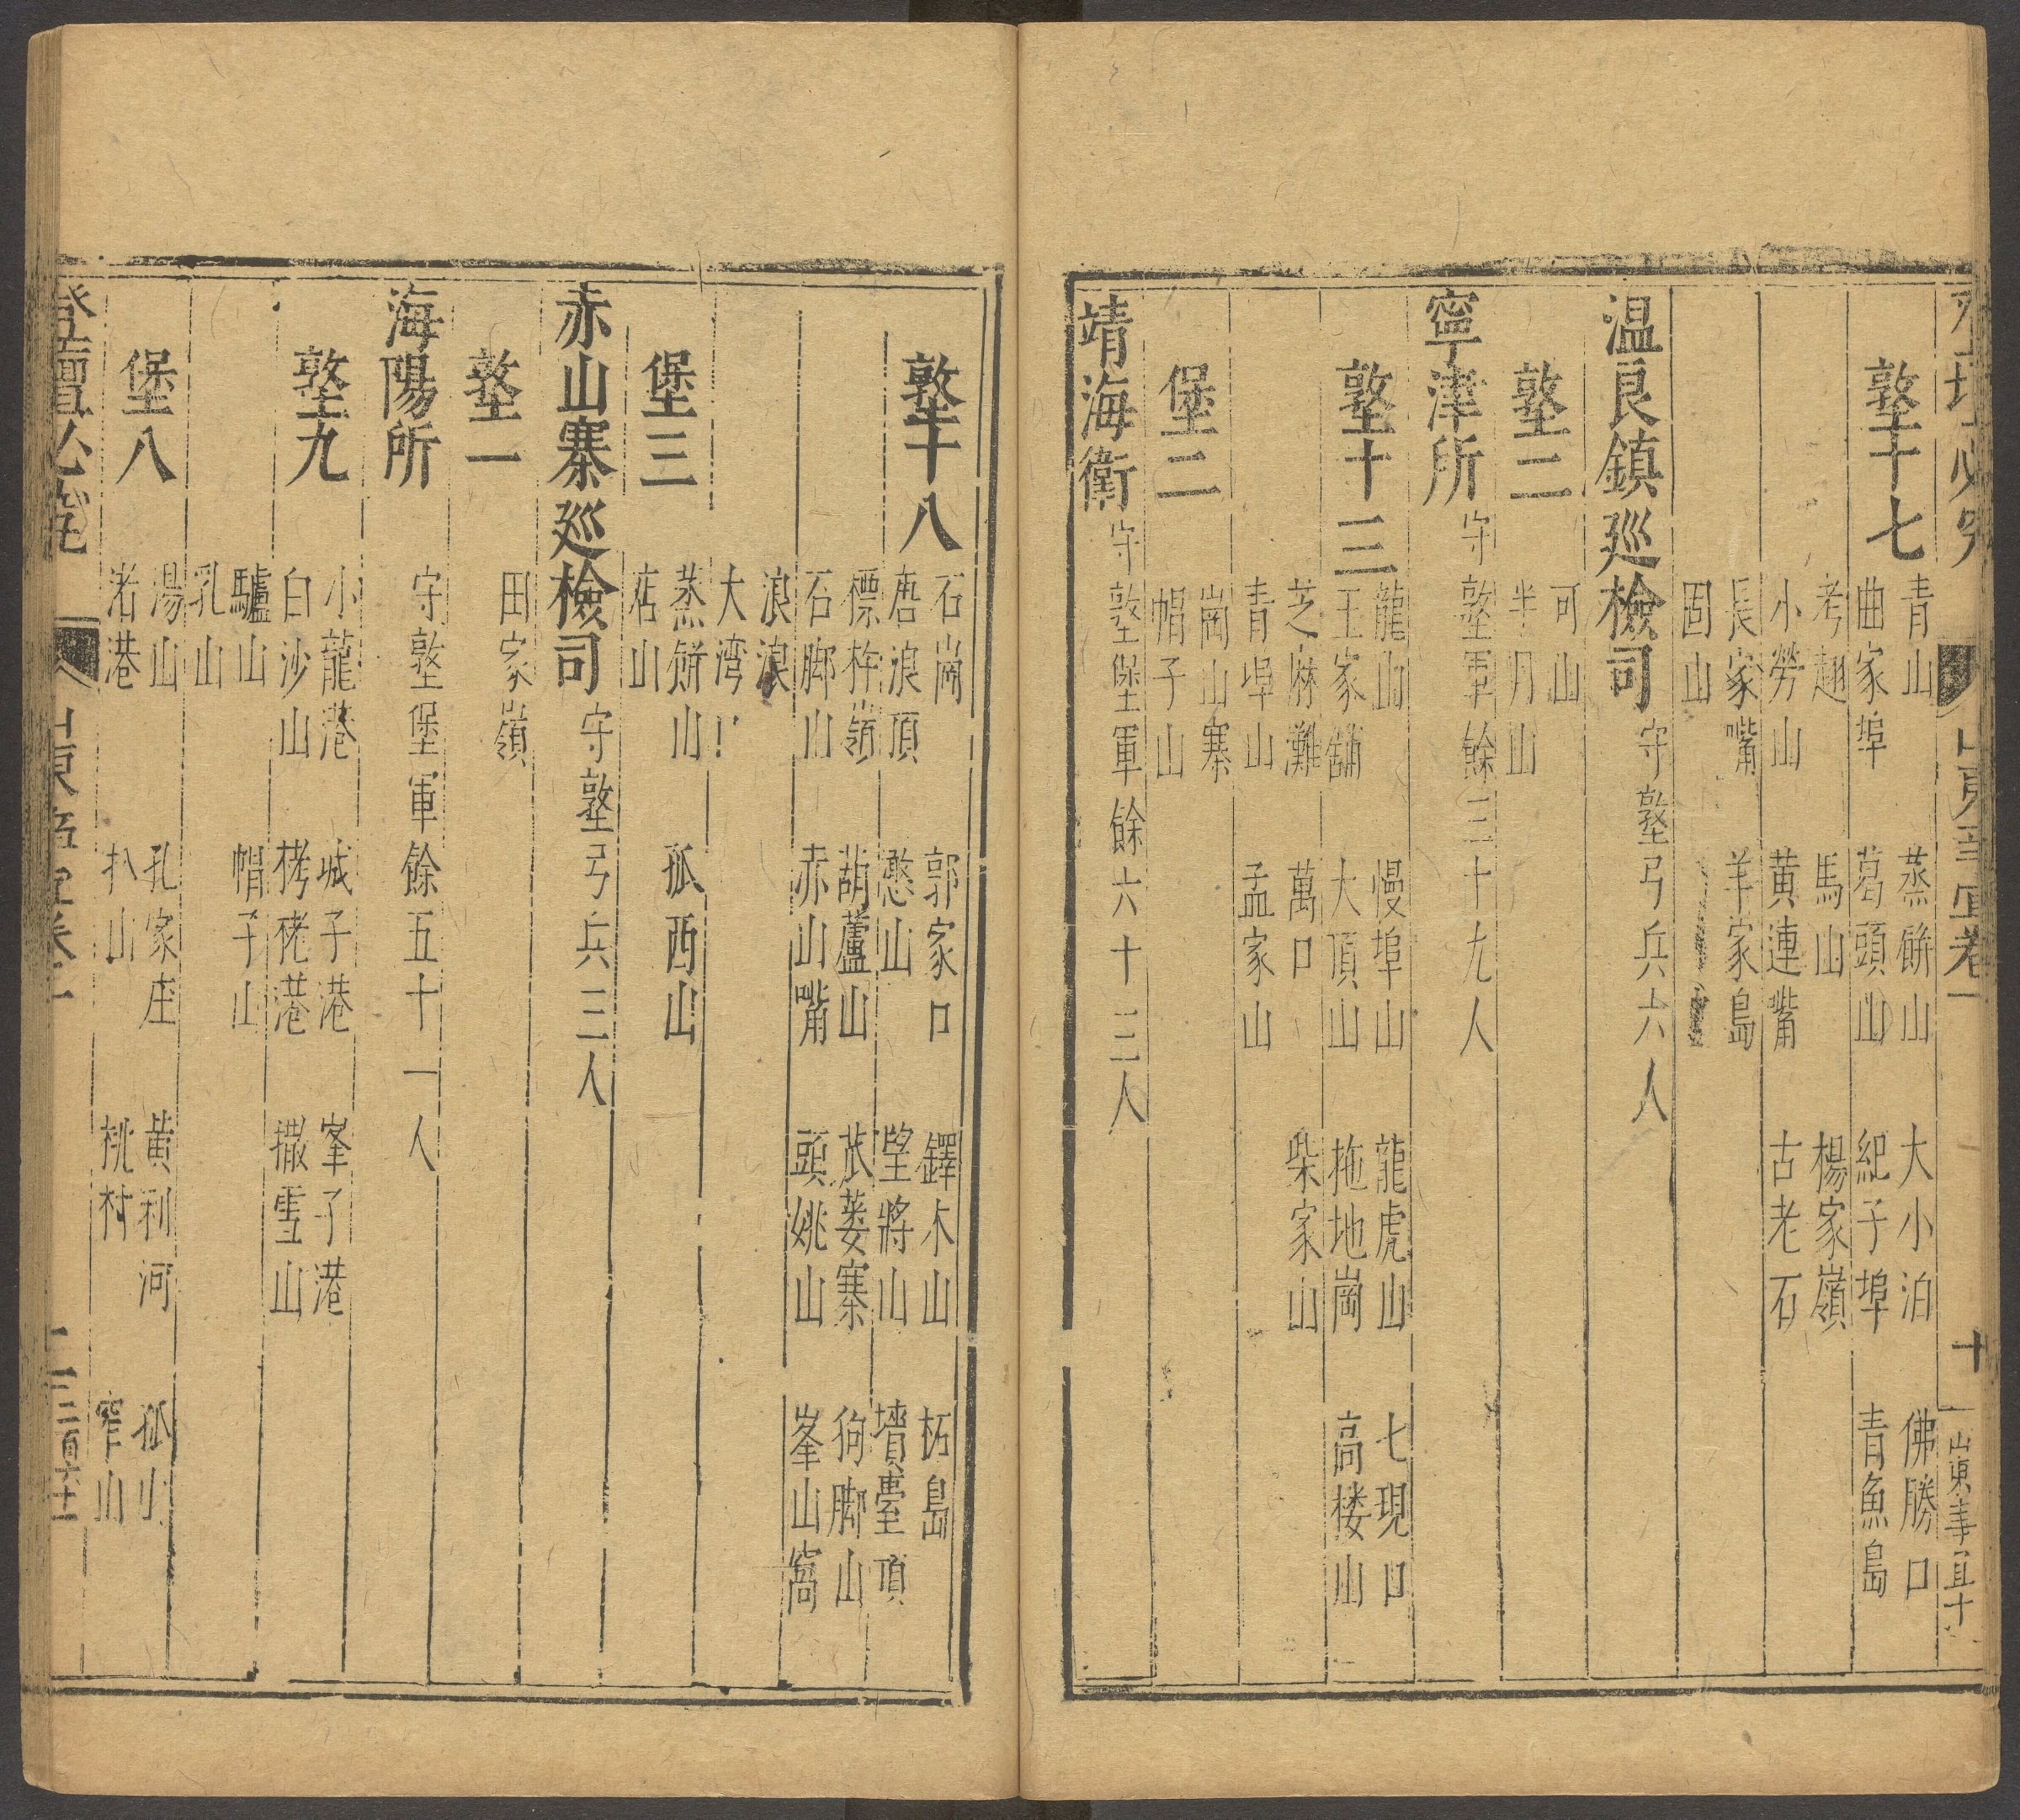 墪十七
青山 蒸餅山 大小泊 佛勝口
曲家埠 葛頭山 紀子埠 青魚島
考趄 馬山 楊家嶺
小勞山 黄連嘴 古老石
長家嘴 羊家島
固山
温良鎮廵檢司 守墪弓兵六人
墪二
可山
半月山
寧津所 守墪軍餘三十九人
墪十三
龍山 慢埠山 龍虎山 七現口
王家舖 大頂山 拖地崗 高楼山
芝麻灘 萬口 柴家山
青埠山 孟家山
堡二
崗山寨
帽子山
靖海衛 守墪堡軍餘六十三人
墪十八
石崗 郭家口 鐸木山 柘島
唐浪頂 憨山 望將山 墳臺頂
標杵嶺 葫蘆山 蒌寨 狗脚山
石脚山 赤山嘴 頭姚山 峯山窩
浪浪
大湾
堡三
蒸餅山 孤西山
店山
赤山寨廵檢司 守墪弓兵三人
墪一
田家嶺
海陽所 守墪堡軍餘五十一人
墪九
小龍港 城子港 峯子港
白沙山 栲栳港 撒雪山
驢山 帽子山
乳山
堡八
湯山 孔家庄 黄利河 孤山
渚港 扒山 桃村 窄山
登壇必究 山東事宜卷十